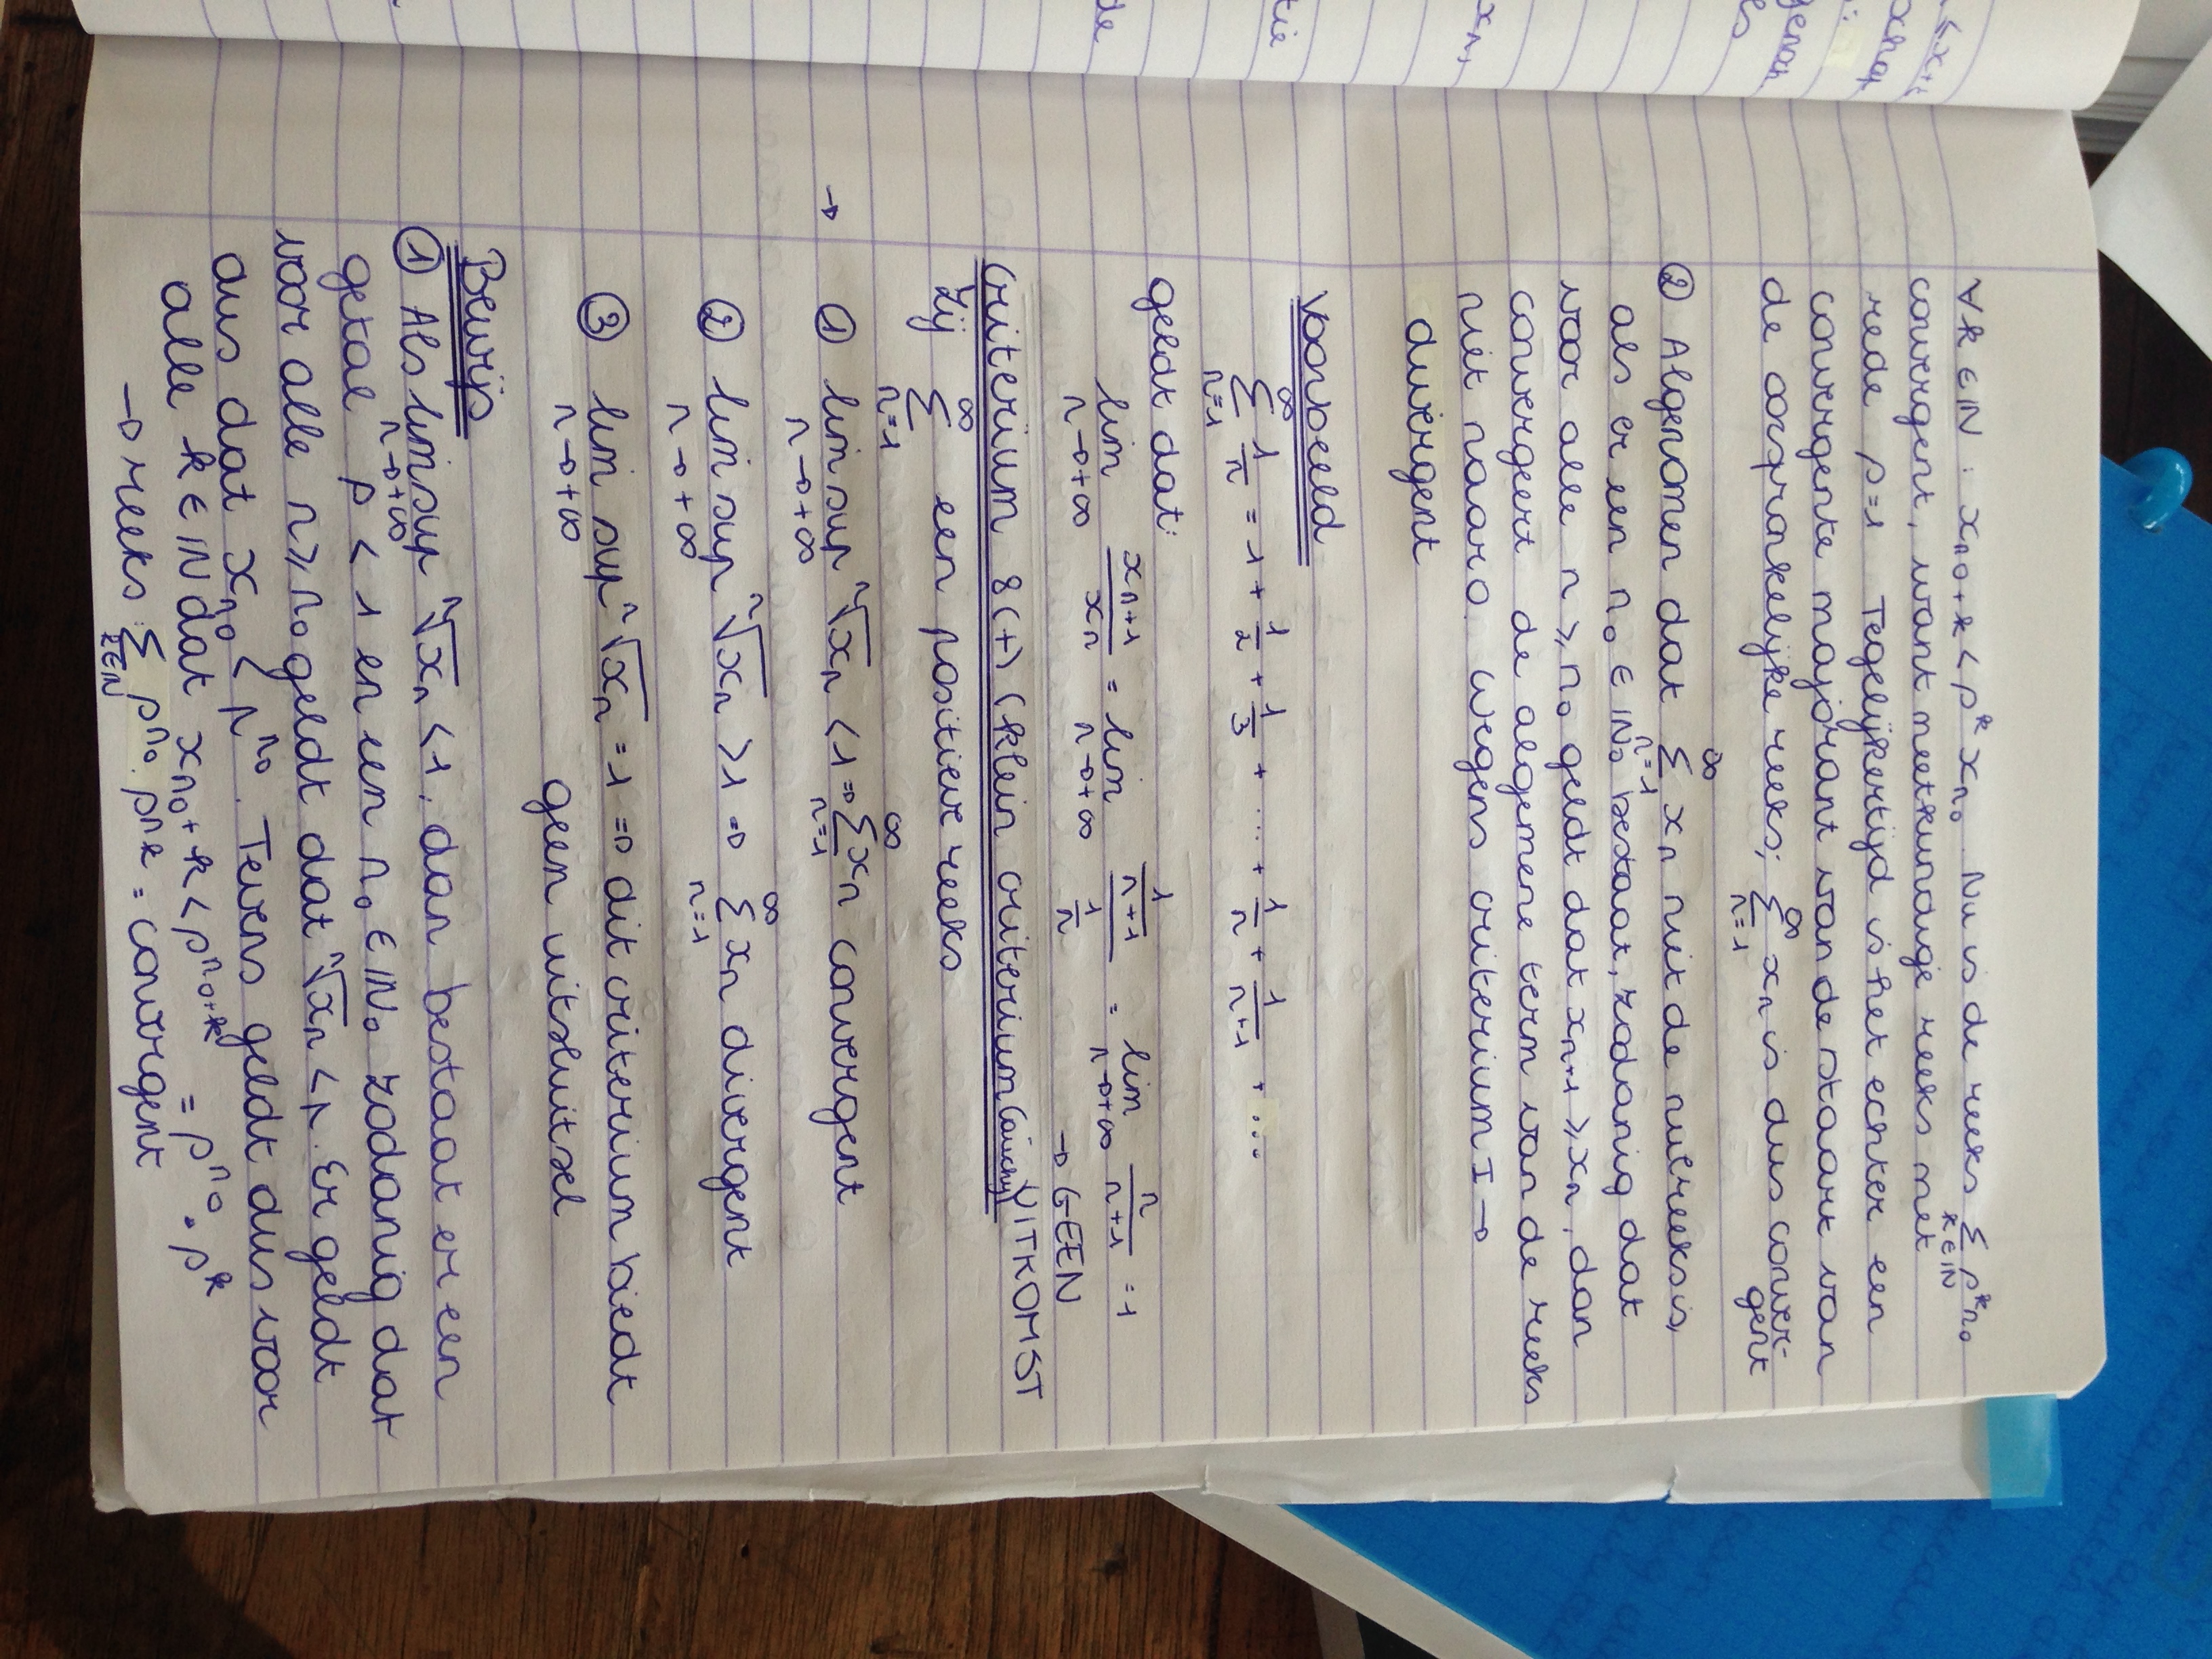 ∀k ∈ ℕ : x_{n₀+k} < p^k x_{n₀}. Nu is de reeks Σ_{k∈ℕ} p^k n₀
convergent, want meetkundige reeks met
rede p=1 Tegelijkertijd is het echter een
convergente majorant van de staart van
de oorspronkelijke reeks; Σ_{n=1}^∞ x_n is dus conver-
gent
② Algenomen dat Σ_{n=1}^∞ x_n niet de nulreeks is,
als er een n₀ ∈ ℕ₀ bestaat, zodanig dat
voor alle n ≥ n₀ geldt dat x_{n+1} ≥ x_n, dan
convergeert de algemene term van de reeks
niet naar 0. Wegens criterium I →
divergent
Voorbeeld
Σ_{n=1}^∞ 1/n = 1 + 1/2 + 1/3 + ... + 1/n + 1/(n+1) + ...
geldt dat:
lim_{n→+∞} x_{n+1}/x_n = lim_{n→+∞} (1/(n+1))/(1/n) = lim_{n→+∞} n/(n+1) = 1
→ GEEN
UITKOMST
Criterium 8(+) (klein criterium Cauchy)
Zij Σ_{n=1}^∞ een positieve reeks
→ ① lim sup_{n→+∞} ⁿ√x_n < 1 ⇒ Σ_{n=1}^∞ x_n convergent
② lim sup_{n→+∞} ⁿ√x_n > 1 ⇒ Σ_{n=1}^∞ x_n divergent
③ lim sup_{n→+∞} ⁿ√x_n = 1 ⇒ dit criterium biedt
geen uitsluitsel
Bewijs
① Als lim sup_{n→+∞} ⁿ√x_n < 1, dan bestaat er een
getal p < 1 en een n₀ ∈ ℕ₀ zodanig dat
voor alle n ≥ n₀ geldt dat ⁿ√x_n < p. Er geldt
dus dat x_{n₀} < p^{n₀}. Tevens geldt dus voor
alle k ∈ ℕ dat x_{n₀+k} < p^{n₀+k} = p^{n₀} · p^k
→ reeks: Σ_{k∈ℕ} p^{n₀} · p^{nk} = convergent